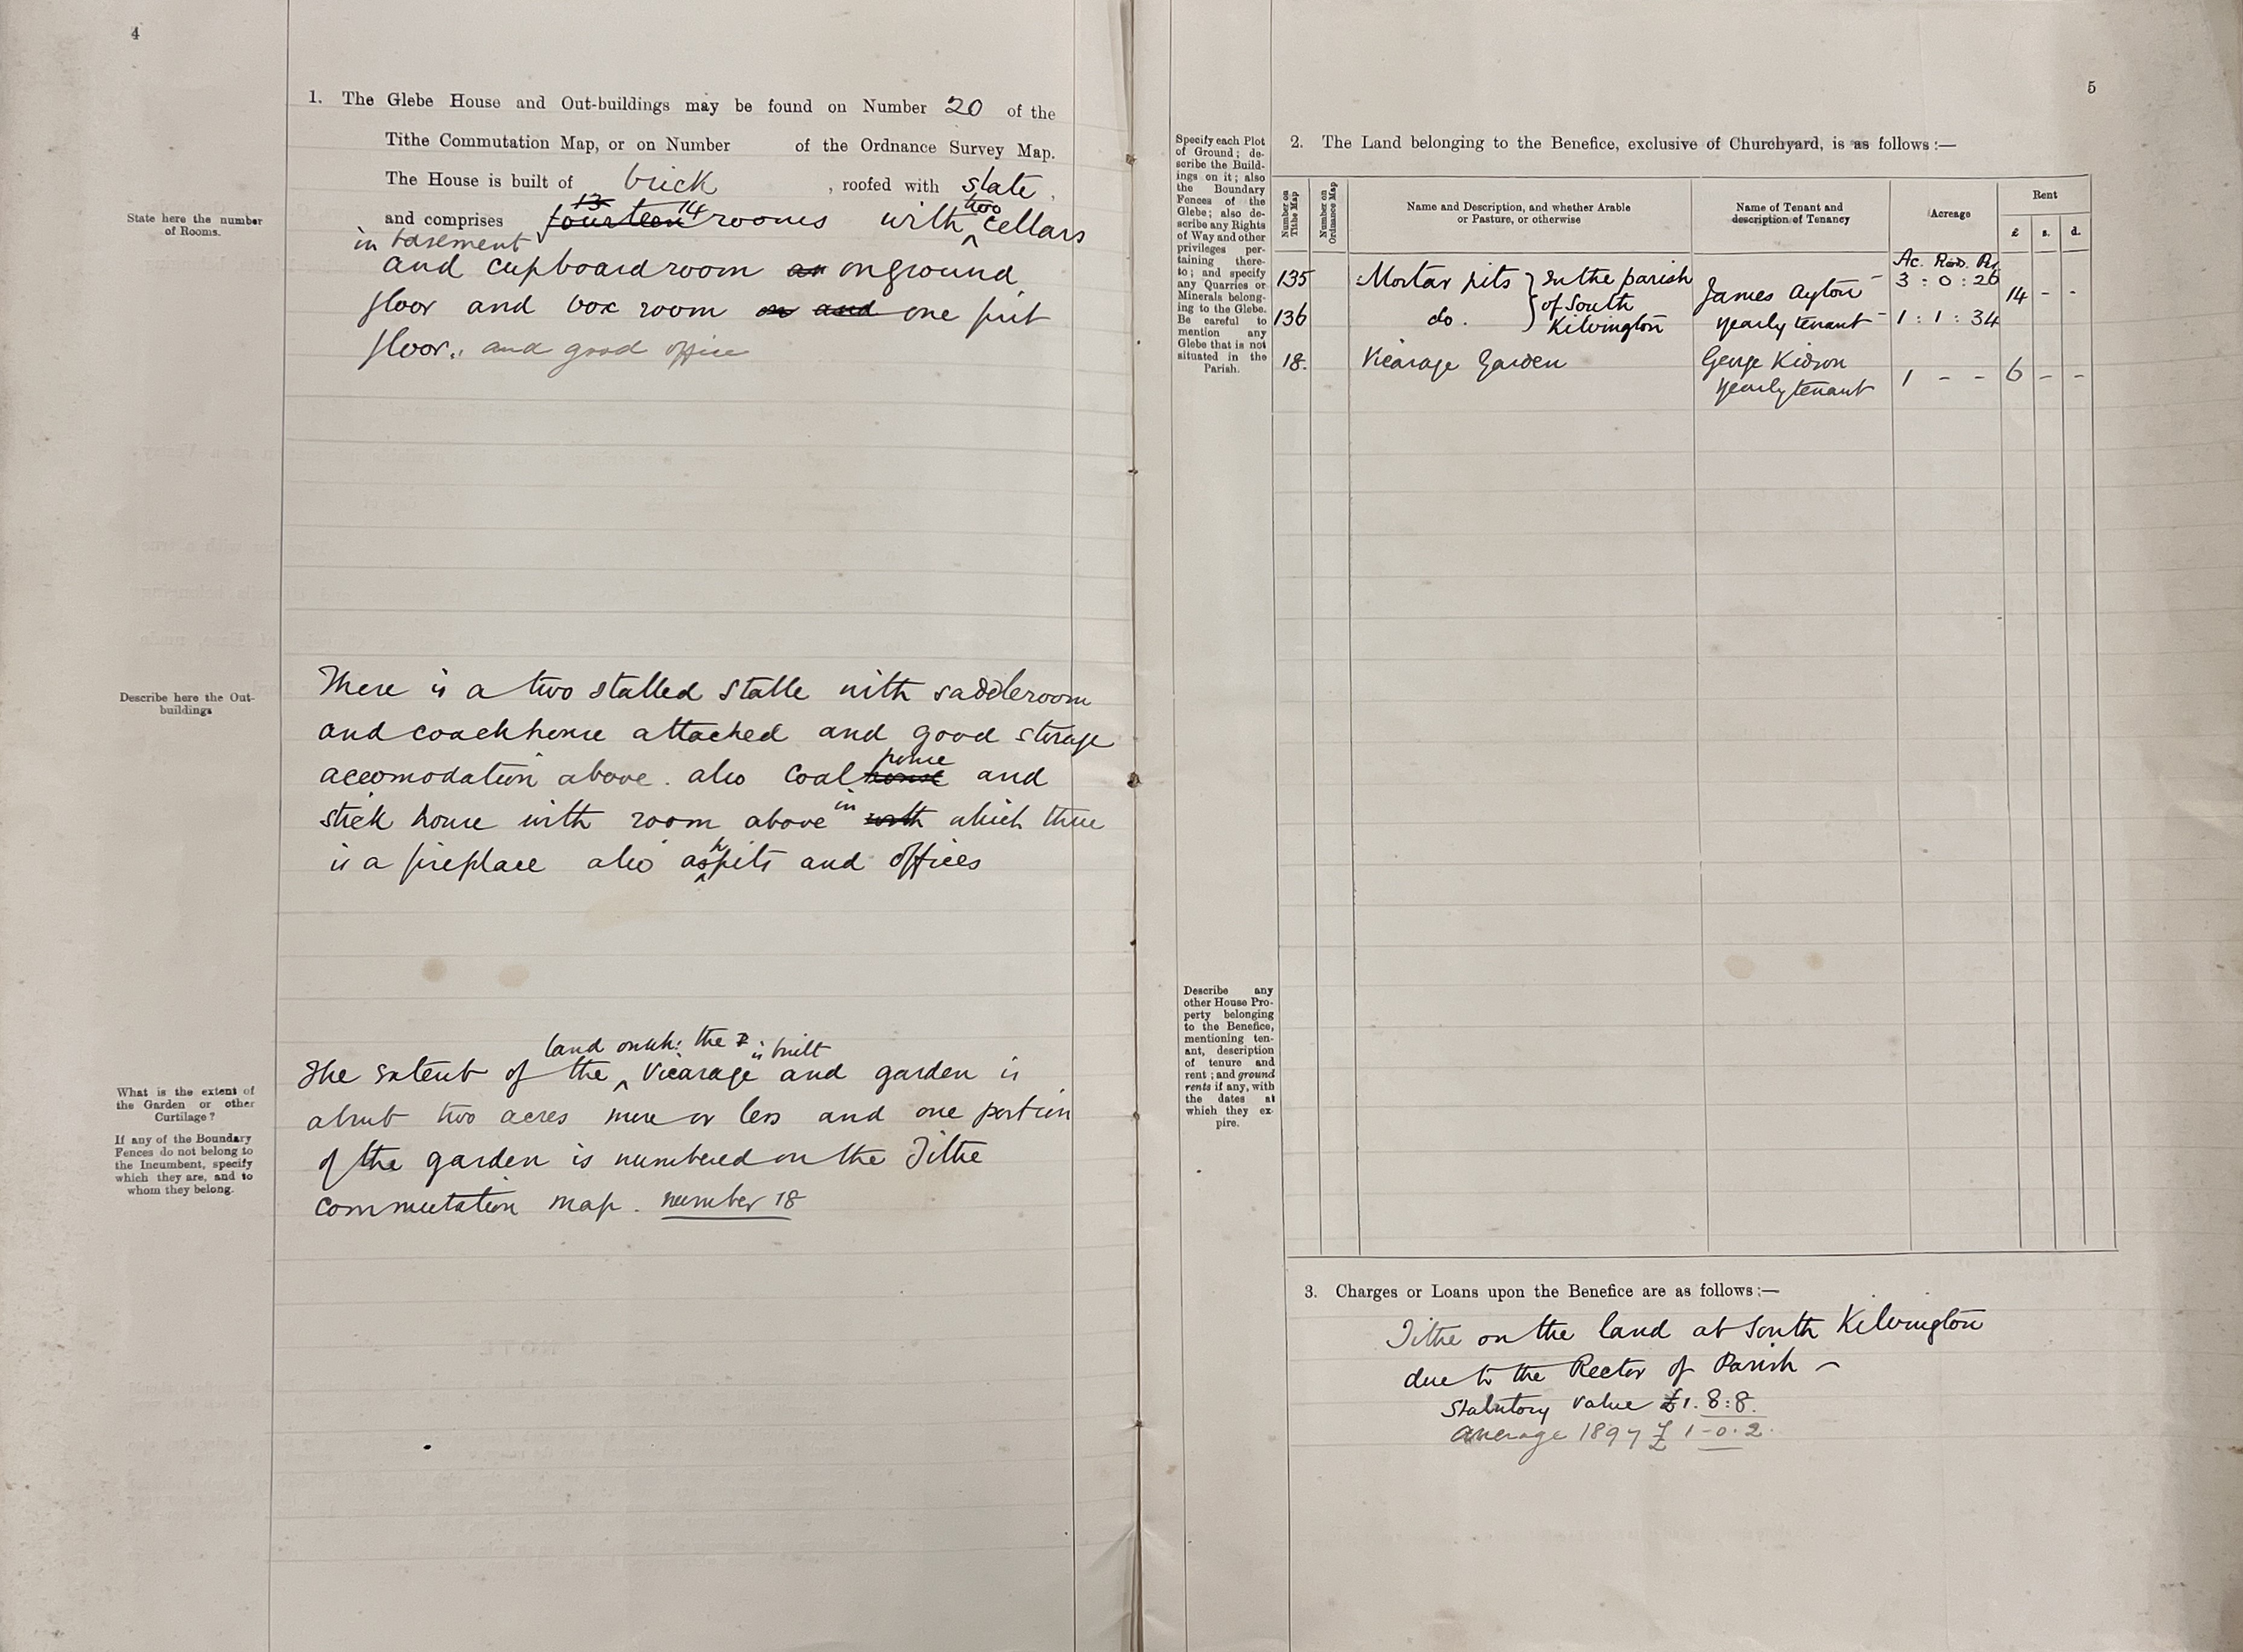 4
1. The Glebe House and Out-buildings may be found on Number 20 of the
Tithe Commutation Map, or on Number of the Ordnance Survey Map.
The House is built of brick , roofed with slate .
13 14 two
and comprises fourteen rooms with ^ cellars
State here the number
of Rooms.
in basement
and cupboard room an on ground
floor and box room on and one first
floor. and good office
Describe here the Out-
buildings
There is a two stalled stable with saddleroom
and coachhouse attached and good storage
accomodation above. also coal house house and
stick house with room above in with which there
is a fireplace also ashpits and offices
What is the extent of
the Garden or other
Curtilage?
If any of the Boundary
Fences do not belong to
the Incumbent, specify
which they are, and to
whom they belong.
land on wh: the is built
The extent of the ^ Vicarage and garden is
about two acres more or less and one portion
of the garden is numbered on the Tithe
Commutation Map. number 18
5
Specify each Plot
of Ground; de-
scribe the Build-
ings on it; also
the Boundary
Fences of the
Glebe; also de-
scribe any Rights
of Way and other
privileges per-
taining there-
to; and specify
any Quarries or
Minerals belong-
ing to the Glebe.
Be careful to
mention any
Glebe that is not
situated in the
Parish.
2. The Land belonging to the Benefice, exclusive of Churchyard, is as follows:—
Number on Tithe Map
Number on Ordnance Map
Name and Description, and whether Arable
or Pasture, or otherwise
Name of Tenant and
description of Tenancy
Acreage
Rent
£ s. d.
Ac. Rod. Ps
135 Mortar pits } In the parish of South Kilvington James Ayton - 3 : 0 : 26
14 - -
136 do. yearly tenant - 1 : 1 : 34
18. Vicarage Garden George Kidson
yearly tenant 1 - - 6 - -
Describe any
other House Pro-
perty belonging
to the Benefice,
mentioning ten-
ant, description
of tenure and
rent; and ground
rents if any, with
the dates at
which they ex-
pire.
3. Charges or Loans upon the Benefice are as follows:—
Tithe on the land at South Kilvington
due to the Rector of Parish —
Statutory Value £1. 8:8.
Average 1897 £1-0.2.